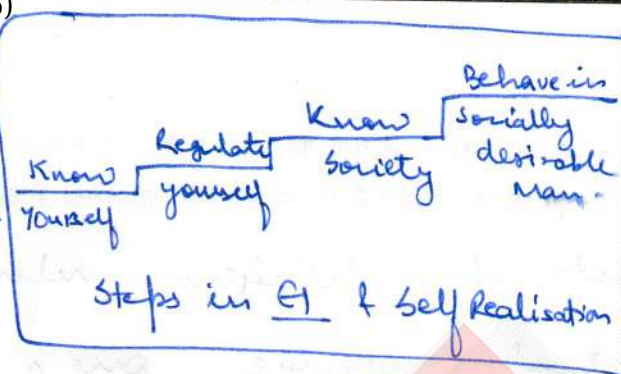 )
Know
Yourself
Regulate
yourself
Know
Society
Behave in
Socially
desirable
Man.
Steps in EI & Self Realisation